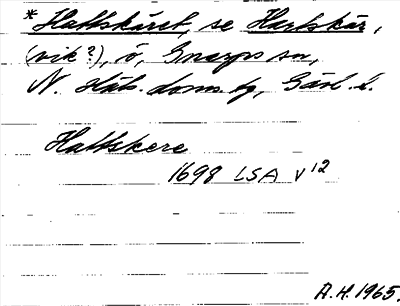 * Hattskäret, se Hartskär,
(vik?), ö, Gnarps sn,
N. Häls. doms bg, Gävl. l.
Hattskere
1698 LSA V 12
A.H. 1965.